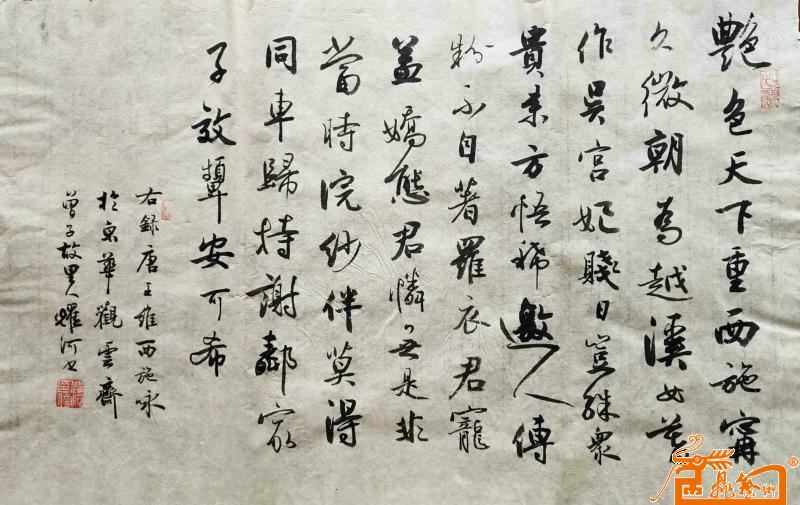 艷色天下重西施寗
久微朝為越溪女暮
作吳宮妃賤日豈殊衆
貴来方悟稀邀人傅
粉不自著羅衣君寵
益嬌態君憐無是非
當時浣紗伴莫得
同車歸持謝鄰家
子效顰安可希
右錄唐王維西施咏
於京華觀雲齋
曾子故里人耀河書